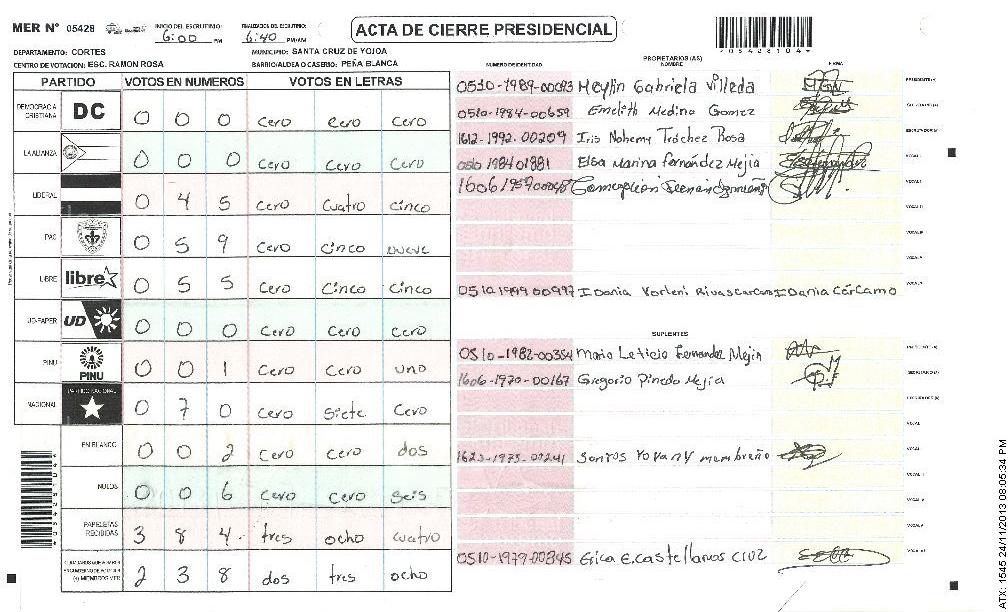 MER N° 05428 INICIO DEL ESCRUTINIO: 6:00 PM FINALIZACION DEL ESCRUTINIO: 6:40 PM/AM ACTA DE CIERRE PRESIDENCIAL
DEPARTAMENTO: CORTES MUNICIPIO: SANTA CRUZ DE YOJOA
CENTRO DE VOTACION: ESC. RAMON ROSA BARRIO/ALDEA O CASERIO: PEÑA BLANCA
PARTIDO VOTOS EN NUMEROS VOTOS EN LETRAS
DEMOCRACIA CRISTIANA DC 0 0 0 Cero Cero Cero
LA ALIANZA 0 0 0 Cero Cero Cero
LIBERAL 0 4 5 Cero Cuatro Cinco
PAC 0 5 9 Cero Cinco nueve
LIBRE libre 0 5 5 Cero Cinco Cinco
UD-FAPER UD 0 0 0 Cero Cero Cero
PINU PINU 0 0 1 Cero Cero uno
NACIONAL PARTIDO NACIONAL 0 7 0 Cero Siete Cero
EN BLANCO 0 0 2 Cero Cero dos
NULOS 0 0 6 Cero Cero Seis
PAPELETAS RECIBIDAS 3 8 4 tres ocho cuatro
(+) MIEMBROS MER 2 3 8 dos tres ocho
PROPIETARIOS (AS)
NUMERO DE IDENTIDAD NOMBRE FIRMA
0510-1989-00093 Meylin Gabriela Villeda PRESIDENTE (A)
0510-1984-00659 Emelith Medina Gomez SECRETARIO (A)
1612-1992-00209 Iris Nohemy Tróchez Rosa ESCRUTADOR (A)
Elsa Marina Fernández Mejia VOCAL I
VOCAL II
VOCAL III
VOCAL IV
VOCAL V
0510 1999 00997 Idania Yorleni Rivas Carcamo Idania Cárcamo
SUPLENTES
0510-1982-00354 Maria Leticia Fernandez Mejia
1606-1970-00167 Gregorio Pinedo Mejia
1623-1973-00241 Santos Yovany membreño
0510-1979-00345 Erica E. Castellanos Cruz
ATX: 1545 24/11/2013 08:05:34 PM